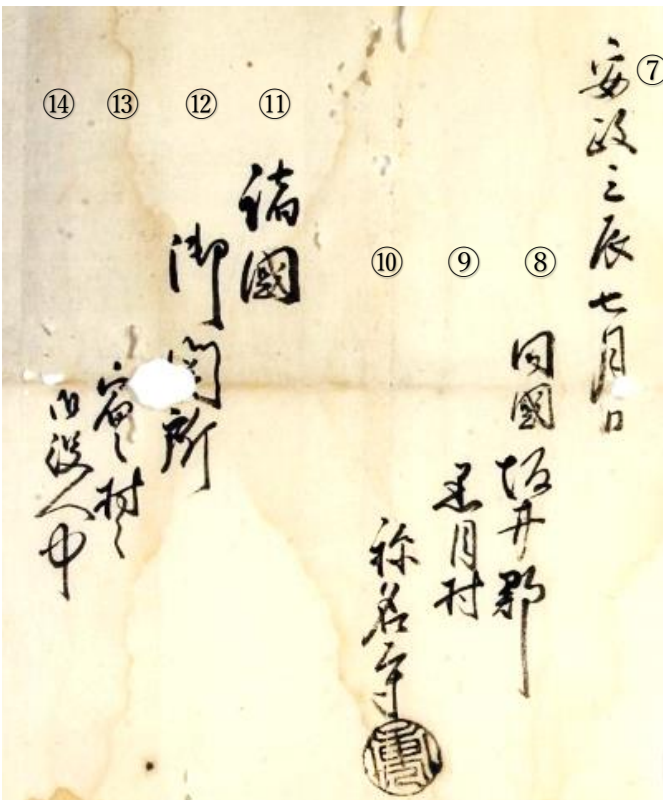 ⑦ 安政三辰七月日
⑧ 同國坂井郡
⑨ 黒目村
⑩ 称名寺
⑪ 諸國
⑫ 御関所
⑬ 宿々村々
⑭ 御役人中